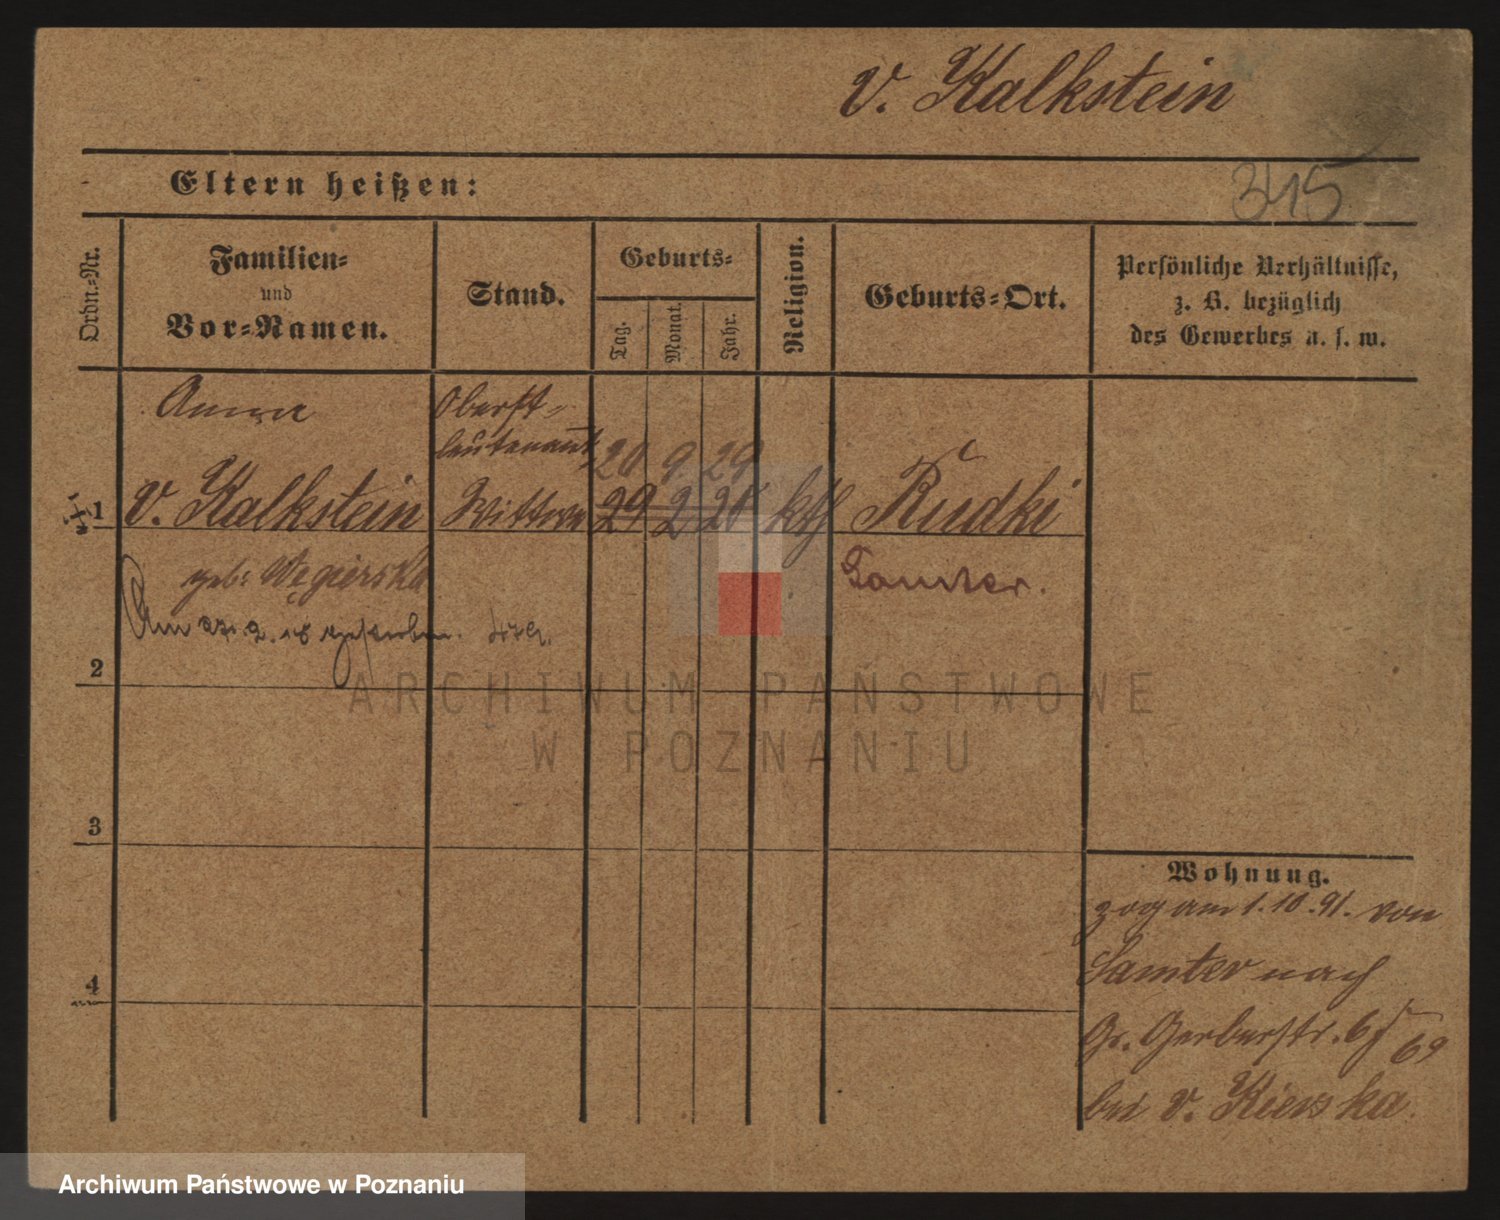 v. Kalkstein
Eltern heißen:
345
Ordn.-Nr.
Familien-
und
Vor-Namen.
Stand.
Geburts-
Tag.
Monat.
Jahr.
Religion.
Geburts-Ort.
Persönliche Verhältnisse,
z. B. bezüglich
des Gewerbes u. s. w.
Anna
Oberst-
leutenant
20 9 29
1 v. Kalkstein Wittwe 29 2 20 kth Rudki
geb: Węgierska
Samter.
Am 27.2.18 gestorben.
2
3
4
Wohnung.
zog am 1.10.91. von
Samter nach
Gr. Gerberstr. 69
bei v. Kierska.
ARCHIWUM PAŃSTWOWE
W POZNANIU
Archiwum Państwowe w Poznaniu